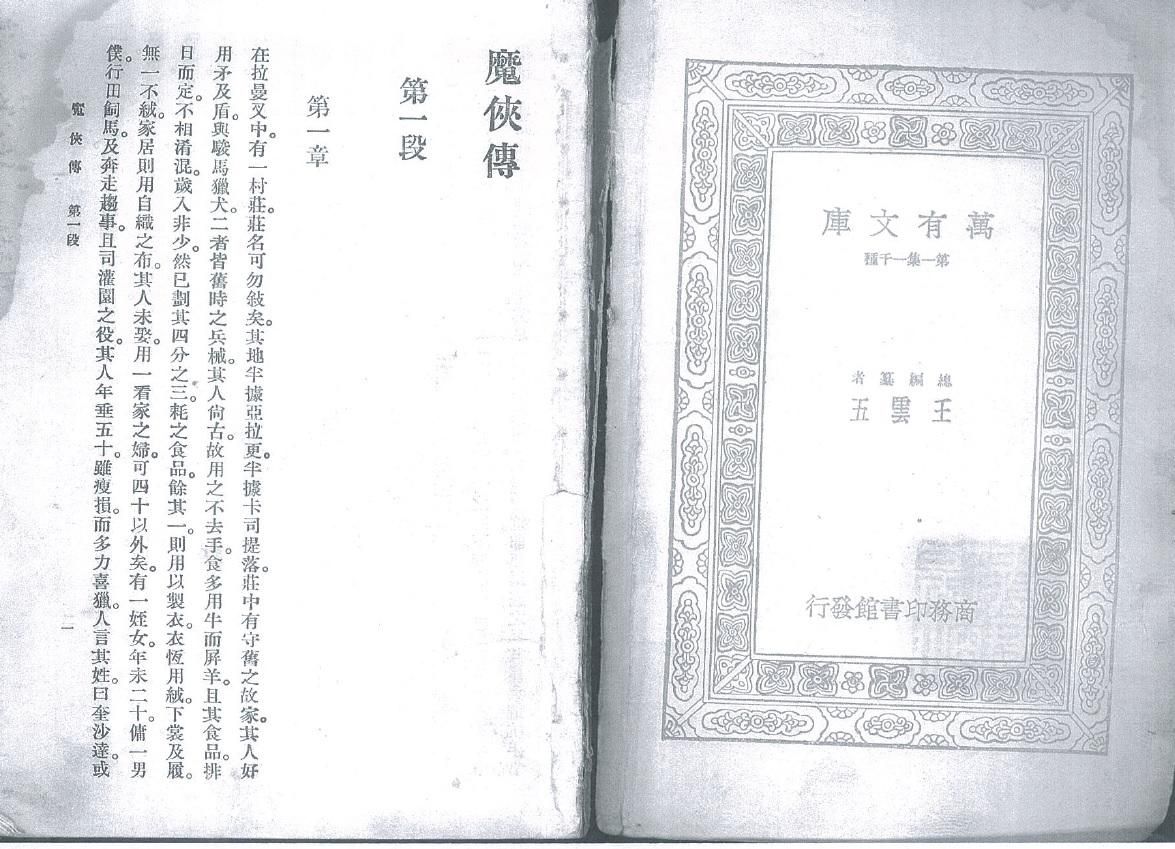 萬有文庫
第一集一千種
總編纂者
王雲五
商務印書館發行
魔俠傳
第一段
第一章
在拉曼叉中。有一村莊。莊名可勿敍矣。其地半據亞拉更。半據卡司提落。莊中有守舊之故家。其人好
用矛及盾。與駿馬獵犬。二者皆舊時之兵械。其人尙古。故用之不去手。食多用牛而屛羊。且其食品。排
日而定。不相淆混。歲入非少。然已劃其四分之三。耗之食品。餘其一。則用以製衣。衣恆用絨。下裳及履。
無一不絨。家居則用自織之布。其人未娶。用一看家之婦。可四十以外矣。有一姪女。年未二十。傭一男
僕。行田飼馬。及奔走趨事。且司灌園之役。其人年垂五十。雖瘦損。而多力喜獵。人言其姓。曰奎沙達。或
魔俠傳 第一段
一